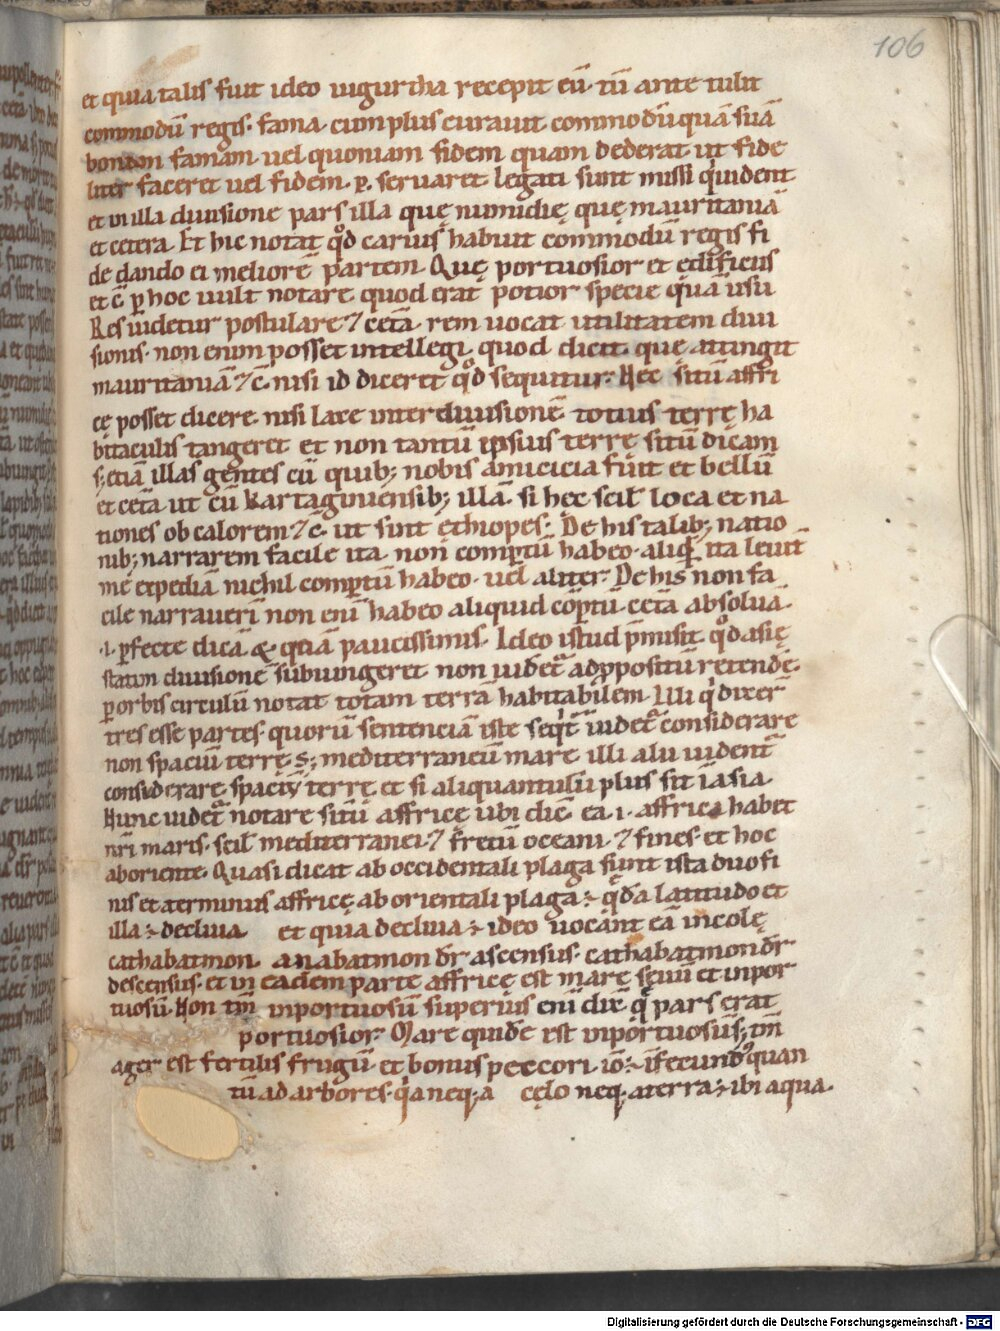 106
et quia talis fuit ideo iugurtha recepit eū. tū ante tulit
commodū regis. fama. cum plus curauit commodū quā suā
bonam famam. uel quoniam fidem quam dederat ut fide
liter faceret uel fidem. p. seruaret. legati sunt missi qͥ uident
et in illa diuisione pars illa quę numidię quę mauritaniā
et cetera. Et hic notat qͦd carius habuit commodū regis fi
de dando ei meliorē partem. Quę portuosior et edificiis
et c̄ p hoc uult notare quod erat potior specie quā usu
Res uidetur postulare ⁊ cetā. rem uocat utilitatem diui
sionis. non enim posset intellegi quod dicit. que attingit
mauritaniā ⁊ c̄. nisi id diceret qͦd sequitur. Hec sitū affri
cę posset dicere. nisi laxe inter diuisionē totius terrę ha
bitaculis tangeret et non tantū ipsius terrę sitū dicam
s; etiā illas gentes cū quib; nobis amicicia fuit et bellū
et cetā ut cū kartaginiensib; illā. si hec scil̄ loca et na
tiones ob calorem ⁊ c̄. ut sunt ethiopes. De his talib; natio
nib; narrarem facile ita. non comptū habeo. aliqͥd ita leuit
me expediā nichil comptū habeo. uel aliter. De his non fa
cile narrauerī non enī habeo aliquid cōptū. cetā absoluā.
.i. pfecte dicā & quā paucissimis. Ideo istud pmisit qͦd asię
statim diuisionē subiungeret non uidet᷑ ad ppositū retendē.
p orbis circulū notat totam terrā habitabilem. Illi qͥ dixer̄
tres esse partes. quorū sentenciā iste seqͥt᷑ uidet᷑ considerare
non spaciū terrę s; mediterraneū mare. illi alii uident᷑
considerare spaciū terrę et si aliquantulū plus sit ī asia.
Hunc uidet᷑ notare sitū affricę ubi dic̄ ea .i. affrica habet
nr̄i maris. scil̄ mediterranei ⁊ fretū oceani. ⁊ fines. et hoc
ab oriente. Quasi dicat ab occidentali plaga sunt ista duo fi
nis et terminus affricę ab orientali plaga ÷ qͥdā latitudo et
illa ÷ decliua. et quia decliua ÷ ideo uocant ea incolę
cathabatmon. anabatmon dr̄ ascensus. cathabatmon dr̄
descensus. et in eadem parte affricę est mare seuū et inpor
tuosū. Non tm̄ inportuosū superius enī dix̄ qͥ pars erat
portuosior. Mare quidē est inportuosū; tm̄
ager est fertilis frugū et bonus peccori. iō ÷ īfecundꝰ quan
tū ad arbores. qͥa neq; a cęlo neq; a terra ÷ ibi aqua.
Digitalisierung gefördert durch die Deutsche Forschungsgemeinschaft - DFG